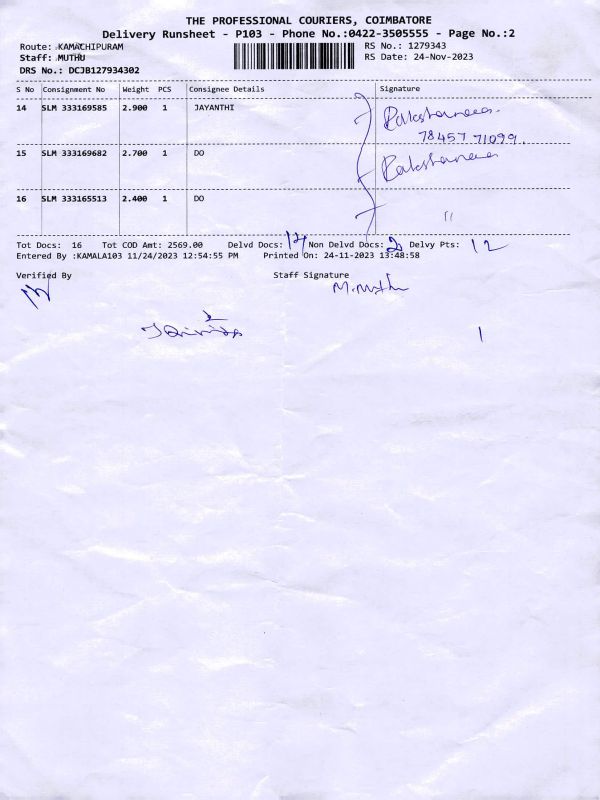 THE PROFESSIONAL COURIERS, COIMBATORE
Delivery Runsheet - P103 - Phone No.:0422-3505555 - Page No.:2
Route: KAMACHIPURAM
RS No.: 1279343
Staff: MUTHU
RS Date: 24-Nov-2023
DRS No.: DCJB127934302
S No Consignment No Weight PCS Consignee Details Signature
14 SLM 333169585 2.900 1 JAYANTHI
78457 71099.
15 SLM 333169682 2.700 1 DO
16 SLM 333165513 2.400 1 DO
Tot Docs: 16 Tot COD Amt: 2569.00 Delvd Docs: 14 Non Delvd Docs: 2 Delvy Pts: 12
Entered By :KAMALA103 11/24/2023 12:54:55 PM Printed On: 24-11-2023 13:48:58
Verified By Staff Signature
M.Muthu